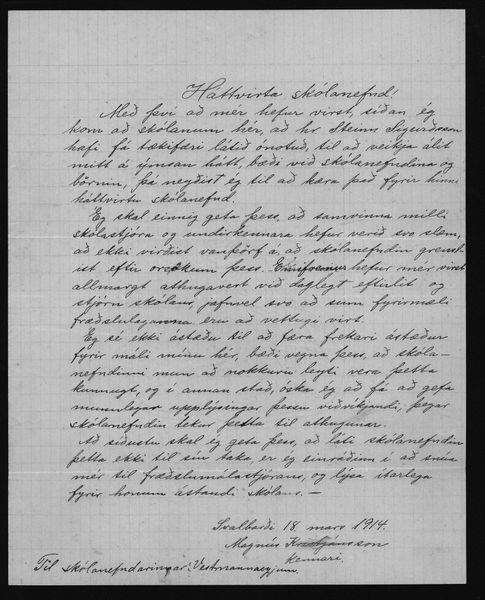 Háttvirta skólanefnd!
Með því að mér hefur virst, síðan ég
kom að skólanum hér, að hr Steinn Sigurðsson
hafi fá tækifæri látið ónotuð, til að veikja álit
mitt á ýmsan hátt, bæði við skólanefndina og
börnin, þá neyðist ég til að kæra það fyrir hinni
háttvirtu skólanefnd.
Eg skal einnig geta þess, að samvinna milli
skólastjóra og undirkennara hefur verið svo slæm,
að ekki virðist vanþörf á, að skólanefndin grensl-
ist eftir orsökum þess. hefur mér virst
allmargt athugavert við daglegt eftirlit og
stjórn skólans, jafnvel svo að sum fyrirmæli
fræðslulaganna eru að vettugi virt.
Eg sé ekki ástæðu til að færa frekari ástæður
fyrir máli mínu hér, bæði vegna þess, að skóla-
nefndinni mun að nokkuru leyti vera þetta
kunnugt, og í annan stað, óska ég að fá að gefa
munnlegar upplýsingar þessu viðvíkjandi, þegar
skólanefndin tekur þetta til athugunar.
Að síðustu skal ég geta þess, að láti skólanefndin
þetta ekki til sín taka er ég einráðinn í að snúa
mér til fræðslumálastjórans, og lýsa ítarlega
fyrir honum ástandi skólans. —
Svalbarði 18. mars 1914.
Magnús Kristjánsson
kennari.
Til skólanefndarinnar í Vestmannaeyjum.